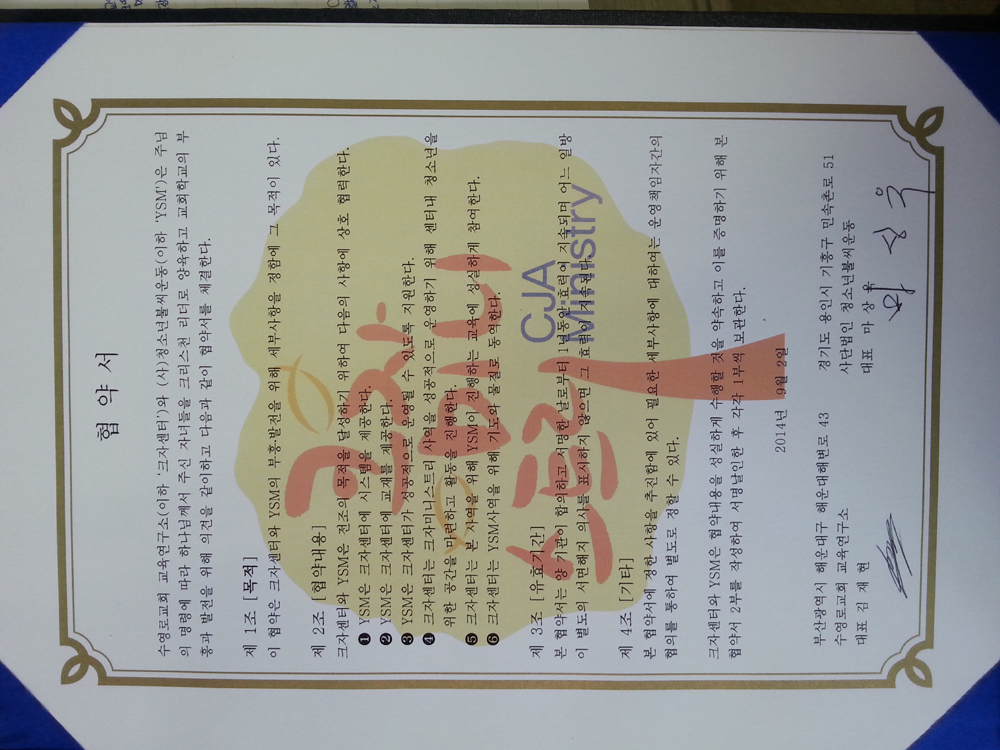 협 약 서
수영로교회 교육연구소(이하 '크자센터')와 (사)청소년불씨운동(이하 'YSM')은 주님
의 명령에 따라 하나님께서 주신 자녀들을 크리스천 리더로 양육하고 교회학교의 부
흥과 발전을 위해 의견을 같이하고 다음과 같이 협약서를 체결한다.
제 1조 [목적]
이 협약은 크자센터와 YSM의 부흥·발전을 위해 세부사항을 정함에 그 목적이 있다.
제 2조 [협약내용]
크자센터와 YSM은 전조의 목적을 달성하기 위하여 다음의 사항에 상호 협력한다.
❶ YSM은 크자센터에 시스템을 제공한다.
❷ YSM은 크자센터에 교재를 제공한다.
❸ YSM은 크자센터가 성공적으로 운영될 수 있도록 지원한다.
❹ 크자센터는 크자미니스트리 사역을 성공적으로 운영하기 위해 센터내 청소년을
위한 공간을 마련하고 활동을 진행한다.
❺ 크자센터는 본 사역을 위해 YSM이 진행하는 교육에 성실하게 참여한다.
❻ 크자센터는 YSM사역을 위해 기도와 물질로 동역한다.
제 3조 [유효기간]
본 협약서는 양 기관이 합의하고 서명한 날로부터 1년동안 효력이 지속되며 어느 일방
이 별도의 서면해지 의사를 표시하지 않으면 그 효력이 지속된다.
제 4조 [기타]
본 협약서에 정한 사항을 추진함에 있어 필요한 세부사항에 대하여는 운영책임자간의
협의를 통하여 별도로 정할 수 있다.
크자센터와 YSM은 협약내용을 성실하게 수행할 것을 약속하고 이를 증명하기 위해 본
협약서 2부를 작성하여 서명날인한 후 각각 1부씩 보관한다.
2014년 9월 2일
부산광역시 해운대구 해운대해변로 43
수영로교회 교육연구소
대표 김 재 현
경기도 용인시 기흥구 민속촌로 51
사단법인 청소년불씨운동
대표 마 상 욱
마 상 욱
CJA
Ministry